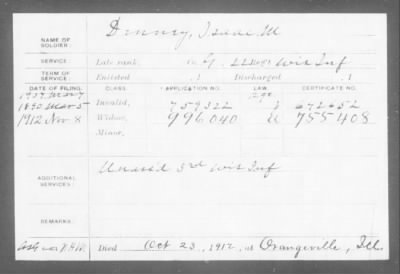 NAME OF SOLDIER: Denney, Isaac M
SERVICE: Late rank, Co. G, 22 Reg't Wis Inf
TERM OF SERVICE: Enlisted , 1 Discharged , 1
DATE OF FILING. CLASS. APPLICATION NO. LAW. CERTIFICATE NO.
1890 Mar 5 Invalid, 759322 672652
1912 Nov 8 Widow, 996040 755408
Minor,
ADDITIONAL SERVICES: Unass'd 3rd Wis Inf
REMARKS:
Died Oct 23, 1912, at Orangeville, Ill.